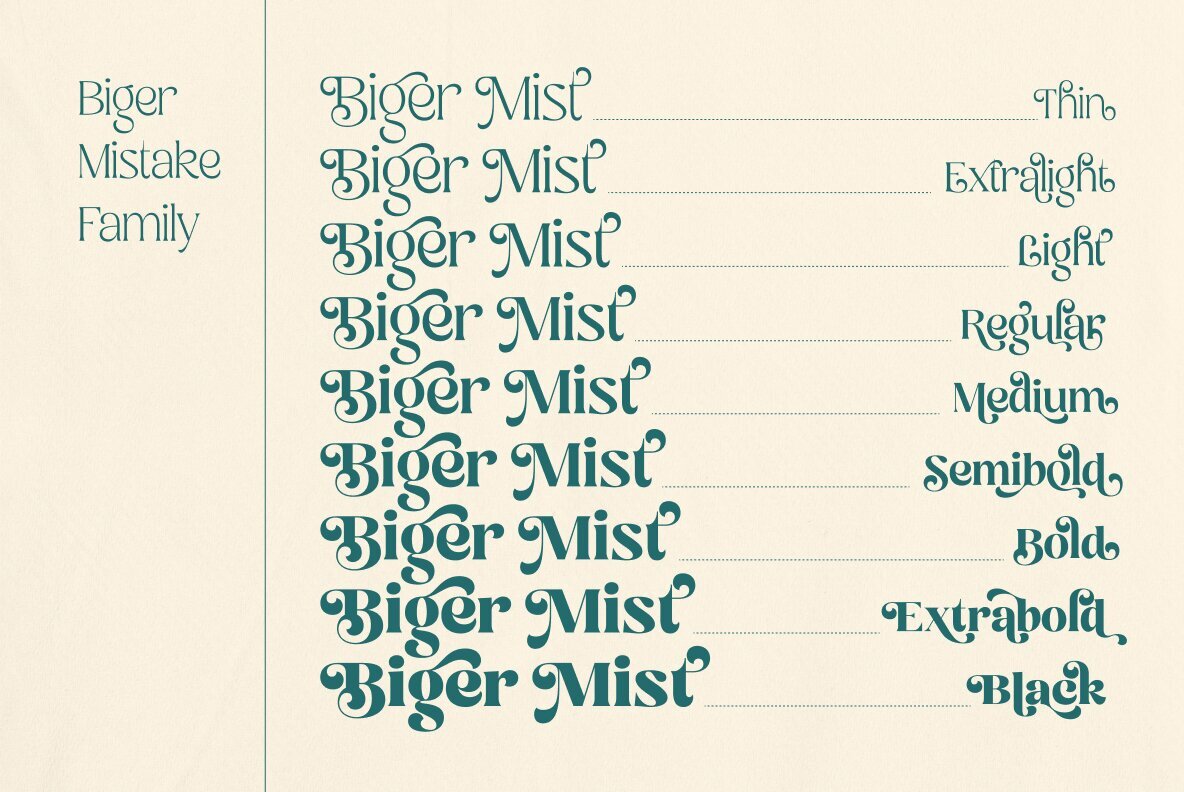 Biger
Mistake
Family
Biger Mist Thin
Biger Mist Extralight
Biger Mist Light
Biger Mist Regular
Biger Mist Medium
Biger Mist Semibold
Biger Mist Bold
Biger Mist Extrabold
Biger Mist Black